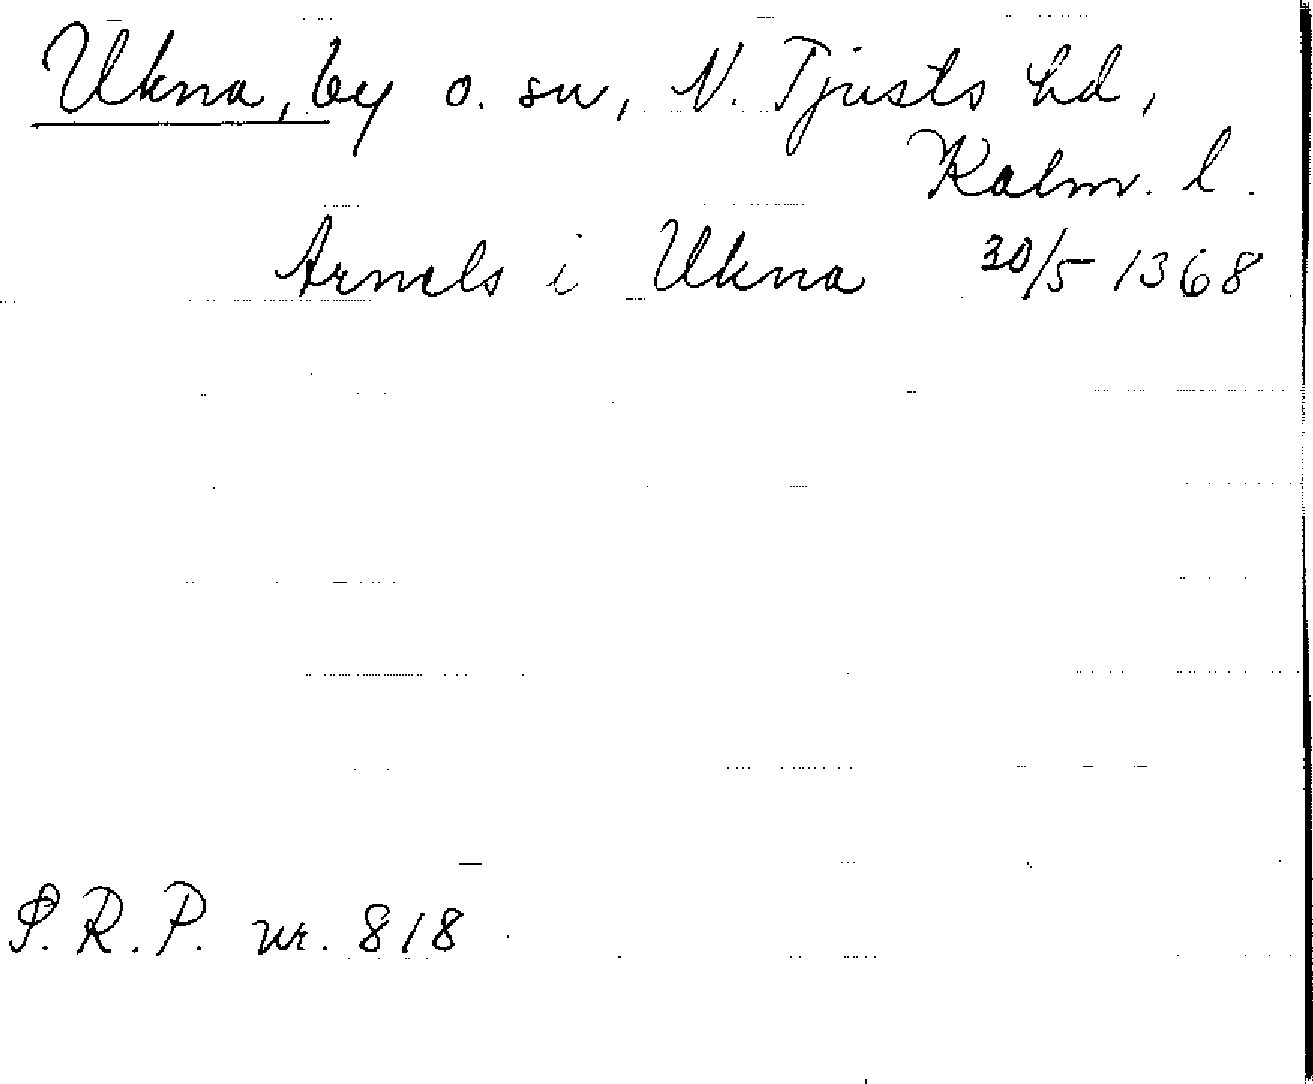 Ukna, by o. sn, N. Tjusts hd,
Kalm. l.
Arnels i Ukna 30/5 1368
S.R.P. nr. 818